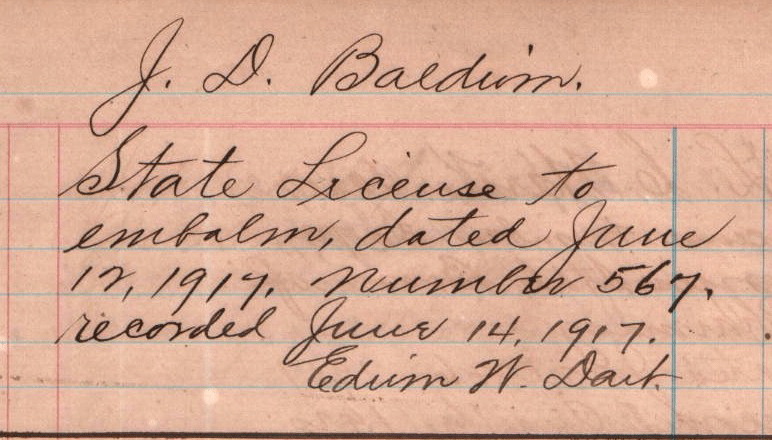 J. D. Baldwin.
State License to
embalm, dated June
12, 1917. Number 567.
recorded June 14, 1917.
Edwin W. Dart.